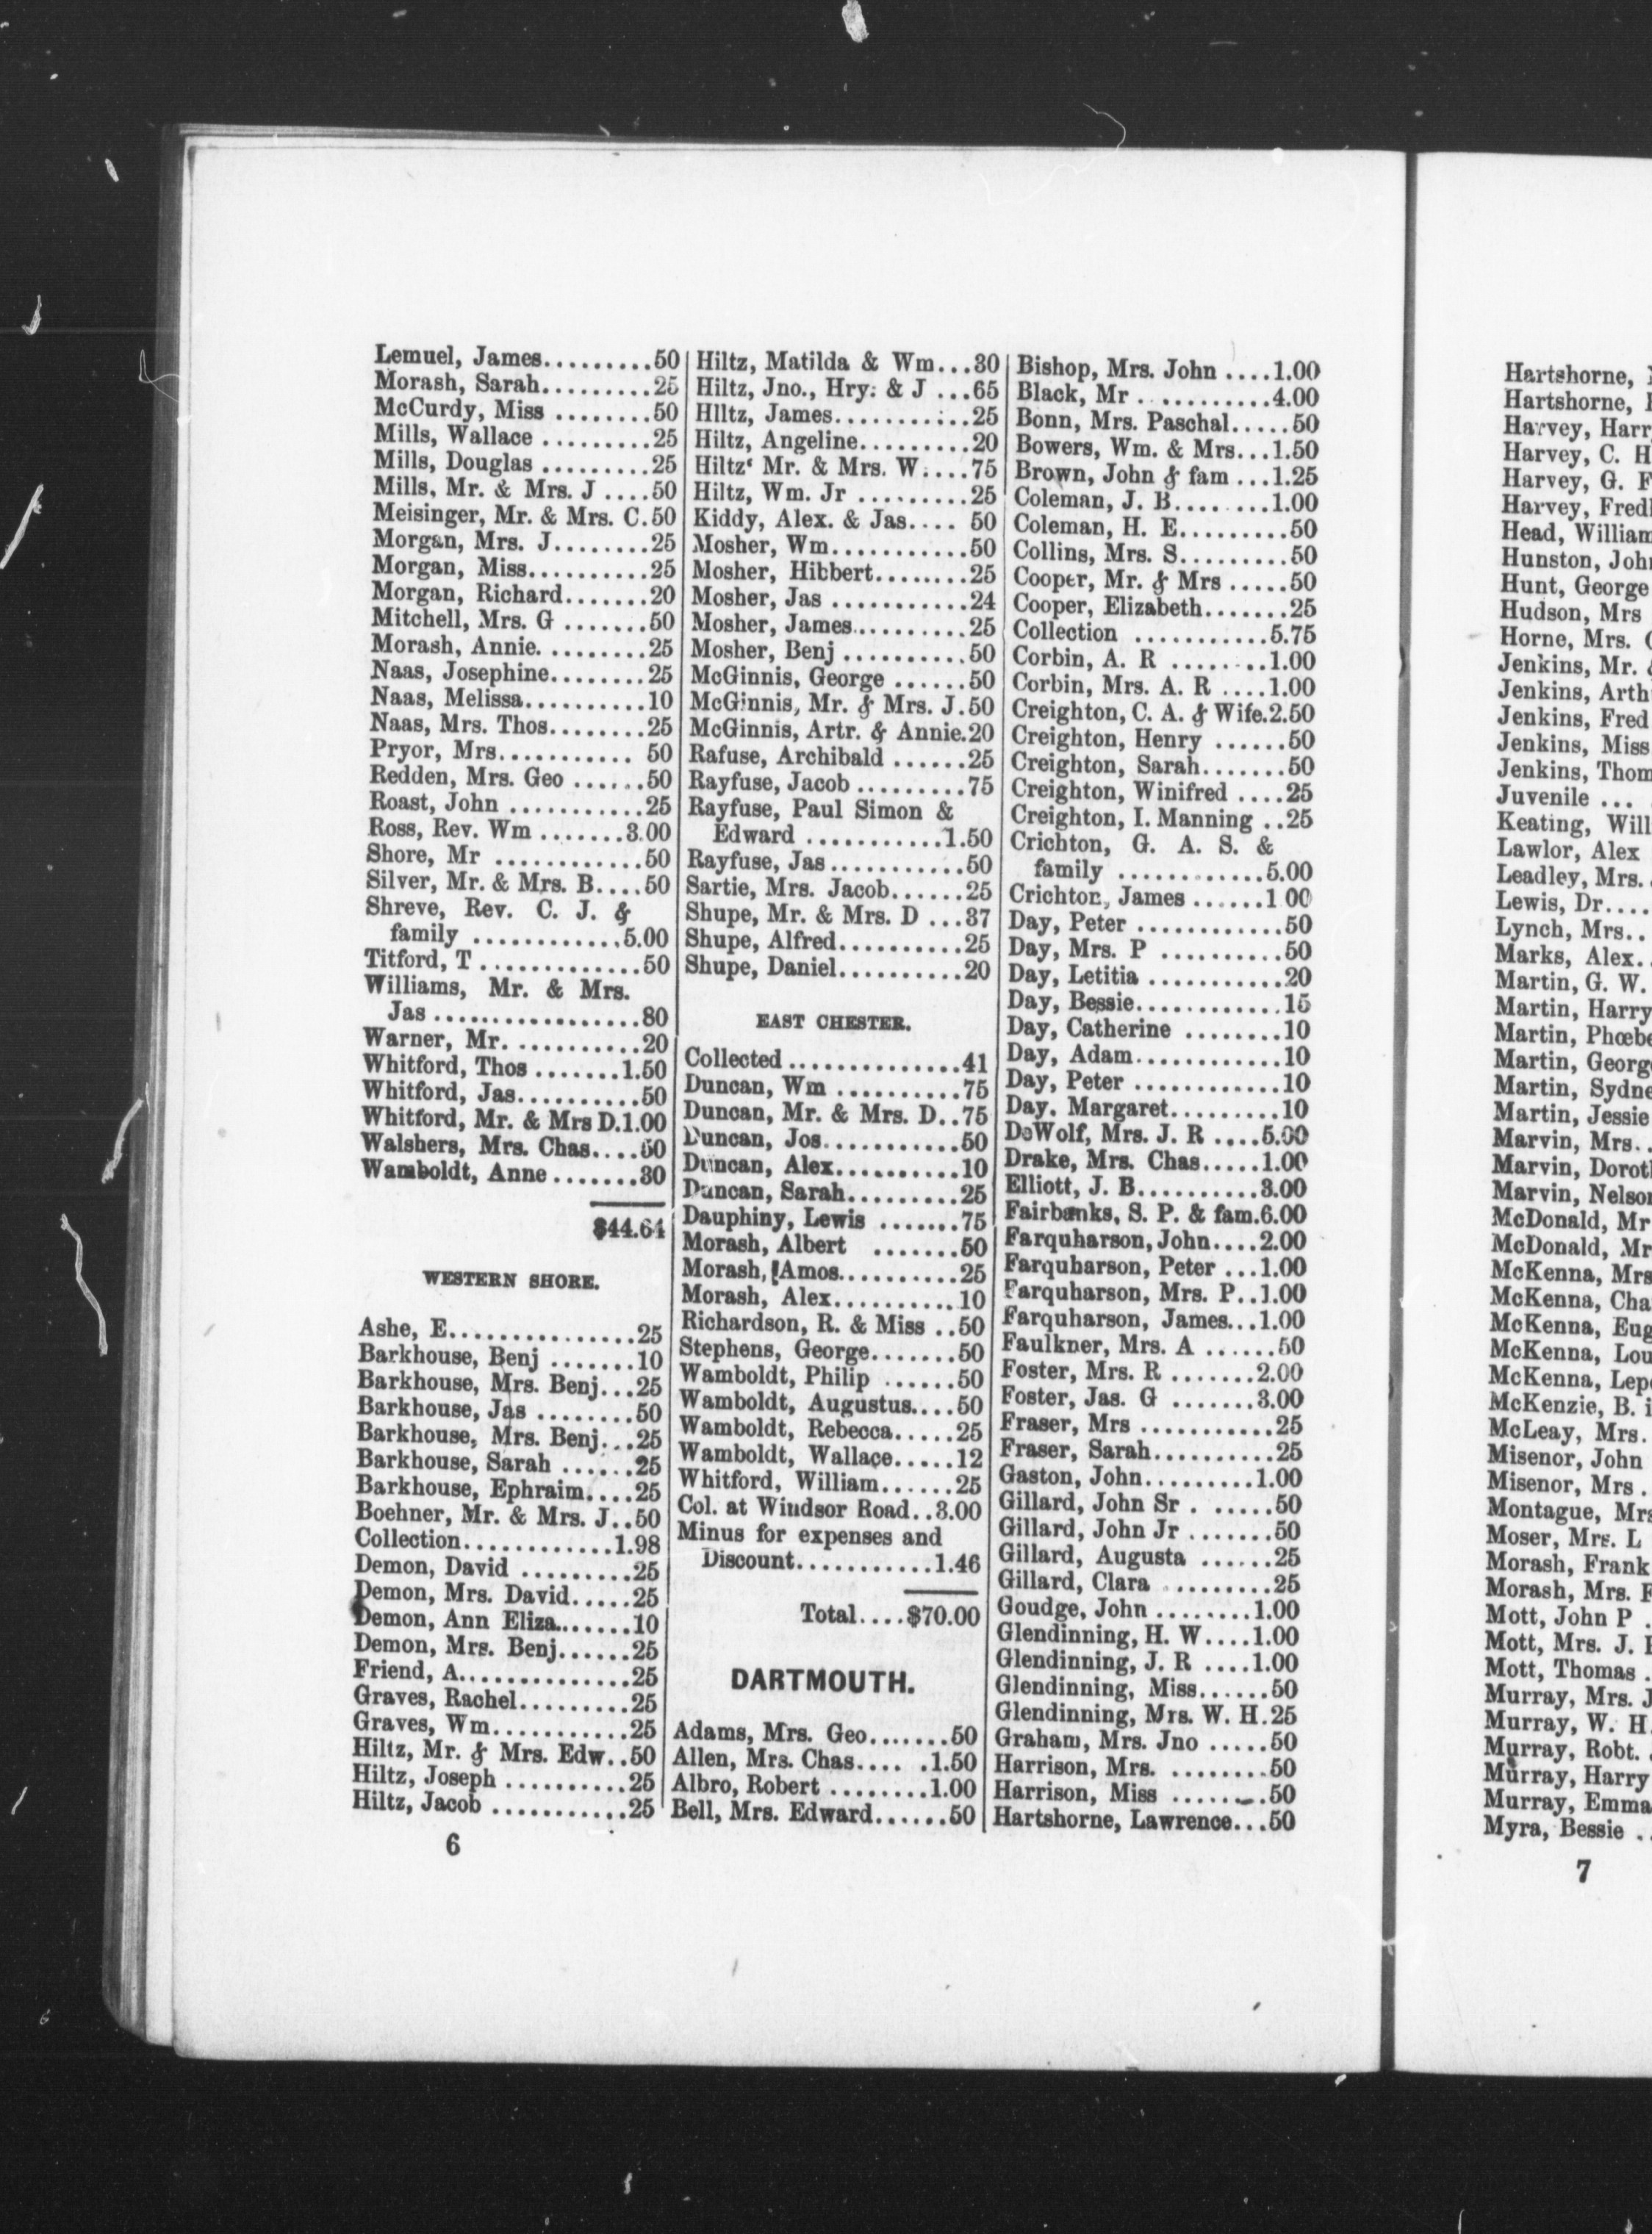 Lemuel, James.........50
Morash, Sarah.........25
McCurdy, Miss ........50
Mills, Wallace .........25
Mills, Douglas .........25
Mills, Mr. & Mrs. J ....50
Meisinger, Mr. & Mrs. C.50
Morgan, Mrs. J........25
Morgan, Miss..........25
Morgan, Richard.......20
Mitchell, Mrs. G .......50
Morash, Annie. ........25
Naas, Josephine........25
Naas, Melissa..........10
Naas, Mrs. Thos........25
Pryor, Mrs........... 50
Redden, Mrs. Geo ......50
Roast, John ...........25
Ross, Rev. Wm .......3.00
Shore, Mr ............50
Silver, Mr. & Mrs. B....50
Shreve, Rev. C. J. &
family ............5.00
Titford, T .............50
Williams, Mr. & Mrs.
Jas .................80
Warner, Mr. ..........20
Whitford, Thos .......1.50
Whitford, Jas..........50
Whitford, Mr. & Mrs D.1.00
Walshers, Mrs. Chas....50
Wamboldt, Anne .......30
$44.64
WESTERN SHORE.
Ashe, E...............25
Barkhouse, Benj .......10
Barkhouse, Mrs. Benj...25
Barkhouse, Jas ........50
Barkhouse, Mrs. Benj...25
Barkhouse, Sarah ......25
Barkhouse, Ephraim....25
Boehner, Mr. & Mrs. J..50
Collection............1.98
Demon, David .........25
Demon, Mrs. David.....25
Demon, Ann Eliza.......10
Demon, Mrs. Benj......25
Friend, A..............25
Graves, Rachel.........25
Graves, Wm...........25
Hiltz, Mr. & Mrs. Edw..50
Hiltz, Joseph ..........25
Hiltz, Jacob ...........25
6
Hiltz, Matilda & Wm...30
Hiltz, Jno., Hry. & J ...65
HIltz, James...........25
Hiltz, Angeline.........20
Hiltz' Mr. & Mrs. W....75
Hiltz, Wm. Jr .........25
Kiddy, Alex. & Jas.... 50
Mosher, Wm...........50
Mosher, Hibbert........25
Mosher, Jas ...........24
Mosher, James..........25
Mosher, Benj ..........50
McGinnis, George ......50
McGinnis, Mr. & Mrs. J.50
McGinnis, Artr. & Annie.20
Rafuse, Archibald ......25
Rayfuse, Jacob .........75
Rayfuse, Paul Simon &
Edward ...........1.50
Rayfuse, Jas...........50
Sartie, Mrs. Jacob......25
Shupe, Mr. & Mrs. D ...37
Shupe, Alfred..........25
Shupe, Daniel..........20
EAST CHESTER.
Collected ..............41
Duncan, Wm ..........75
Duncan, Mr. & Mrs. D..75
Duncan, Jos...........50
Duncan, Alex..........10
Duncan, Sarah.........25
Dauphiny, Lewis .......75
Morash, Albert .......50
Morash, Amos..........25
Morash, Alex..........10
Richardson, R. & Miss ..50
Stephens, George.......50
Wamboldt, Philip ......50
Wamboldt, Augustus....50
Wamboldt, Rebecca.....25
Wamboldt, Wallace.....12
Whitford, William......25
Col. at Windsor Road..3.00
Minus for expenses and
Discount...........1.46
Total....$70.00
DARTMOUTH.
Adams, Mrs. Geo.......50
Allen, Mrs. Chas.... .1.50
Albro, Robert ........1.00
Bell, Mrs. Edward......50
Bishop, Mrs. John ....1.00
Black, Mr . .........4.00
Bonn, Mrs. Paschal.....50
Bowers, Wm. & Mrs...1.50
Brown, John & fam ...1.25
Coleman, J. B........1.00
Coleman, H. E.........50
Collins, Mrs. S.........50
Cooper, Mr. & Mrs .....50
Cooper, Elizabeth.......25
Collection ...........5.75
Corbin, A. R ........1.00
Corbin, Mrs. A. R ....1.00
Creighton, C. A. & Wife.2.50
Creighton, Henry ......50
Creighton, Sarah.......50
Creighton, Winifred ....25
Creighton, I. Manning ..25
Crichton, G. A. S. &
family ............5.00
Crichton, James ......1 00
Day, Peter ............50
Day, Mrs. P ..........50
Day, Letitia ...........20
Day, Bessie............15
Day, Catherine ........10
Day, Adam............10
Day, Peter ............10
Day. Margaret.........10
DeWolf, Mrs. J. R ....5.00
Drake, Mrs. Chas.....1.00
Elliott, J. B..........3.00
Fairbanks, S. P. & fam.6.00
Farquharson, John....2.00
Farquharson, Peter ...1.00
Farquharson, Mrs. P..1.00
Farquharson, James...1.00
Faulkner, Mrs. A ......50
Foster, Mrs. R .......2.00
Foster, Jas. G .......3.00
Fraser, Mrs ...........25
Fraser, Sarah..........25
Gaston, John.........1.00
Gillard, John Sr . ......50
Gillard, John Jr .......50
Gillard, Augusta ......25
Gillard, Clara .........25
Goudge, John ........1.00
Glendinning, H. W....1.00
Glendinning, J. R ....1.00
Glendinning, Miss......50
Glendinning, Mrs. W. H.25
Graham, Mrs. Jno .....50
Harrison, Mrs. ........50
Harrison, Miss ........50
Hartshorne, Lawrence...50
Hartshorne,
Hartshorne,
Harvey, Harr
Harvey, C. H
Harvey, G. F
Harvey, Fred
Head, William
Hunston, John
Hunt, George
Hudson, Mrs
Horne, Mrs.
Jenkins, Mr. &
Jenkins, Arth
Jenkins, Fred
Jenkins, Miss
Jenkins, Thom
Juvenile ...
Keating, Will
Lawlor, Alex
Leadley, Mrs.
Lewis, Dr....
Lynch, Mrs..
Marks, Alex.
Martin, G. W.
Martin, Harry
Martin, Phœbe
Martin, George
Martin, Sydne
Martin, Jessie
Marvin, Mrs..
Marvin, Dorot
Marvin, Nelson
McDonald, Mr
McDonald, Mr
McKenna, Mrs
McKenna, Cha
McKenna, Eug
McKenna, Lou
McKenna, Lep
McKenzie, B. i
McLeay, Mrs.
Misenor, John
Misenor, Mrs .
Montague, Mrs
Moser, Mrs. L
Morash, Frank
Morash, Mrs. F
Mott, John P .
Mott, Mrs. J.
Mott, Thomas .
Murray, Mrs. J
Murray, W. H.
Murray, Robt.
Murray, Harry
Murray, Emma
Myra, Bessie ..
7